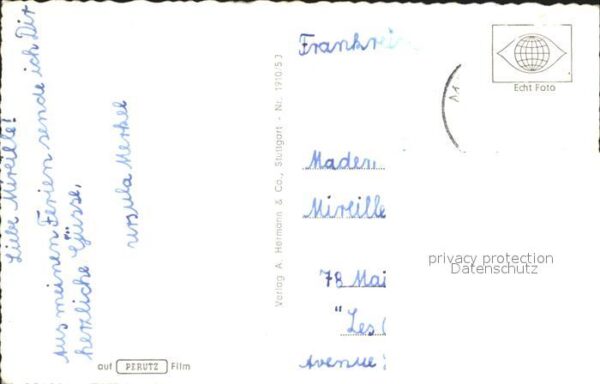 Liebe Mireille!
Aus meinen Ferien sende ich Dir
herzliche Güsse,
Ursula Merkel
Verlag A. Hermann & Co., Stuttgart - Nr. 1910/53
auf PERUTZ Film
Echt Foto
Frankrei
Madem
Mireille
78 Mai
"Les
Avenue
privacy protection
Datenschutz